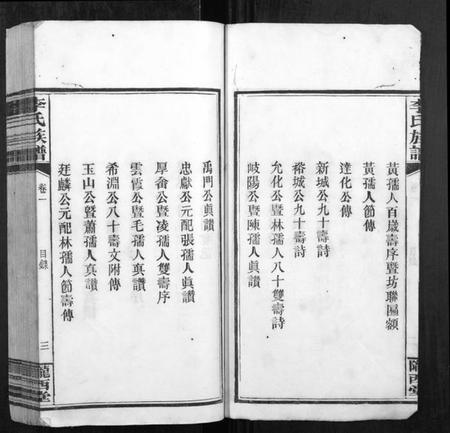 李氏族譜
黃孺人百歲壽序暨坊聯匾額
黃孺人節傳
達化公傳
新城公九十壽詩
裕城公九十壽詩
允化公暨林孺人八十雙壽詩
岐陽公暨陳孺人眞讚
隴西堂
禹門公眞讚
忠獻公元配張孺人眞讚
厚畬公暨凌孺人雙壽序
雲霞公暨毛孺人眞讚
希淵公八十壽文附傳
玉山公暨蕭孺人眞讚
廷麟公元配林孺人節壽傳
李氏族譜
卷一
目錄
三
隴西堂